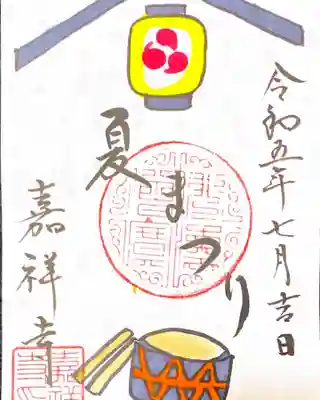 令和五年七月吉日
夏まつり
嘉祥寺